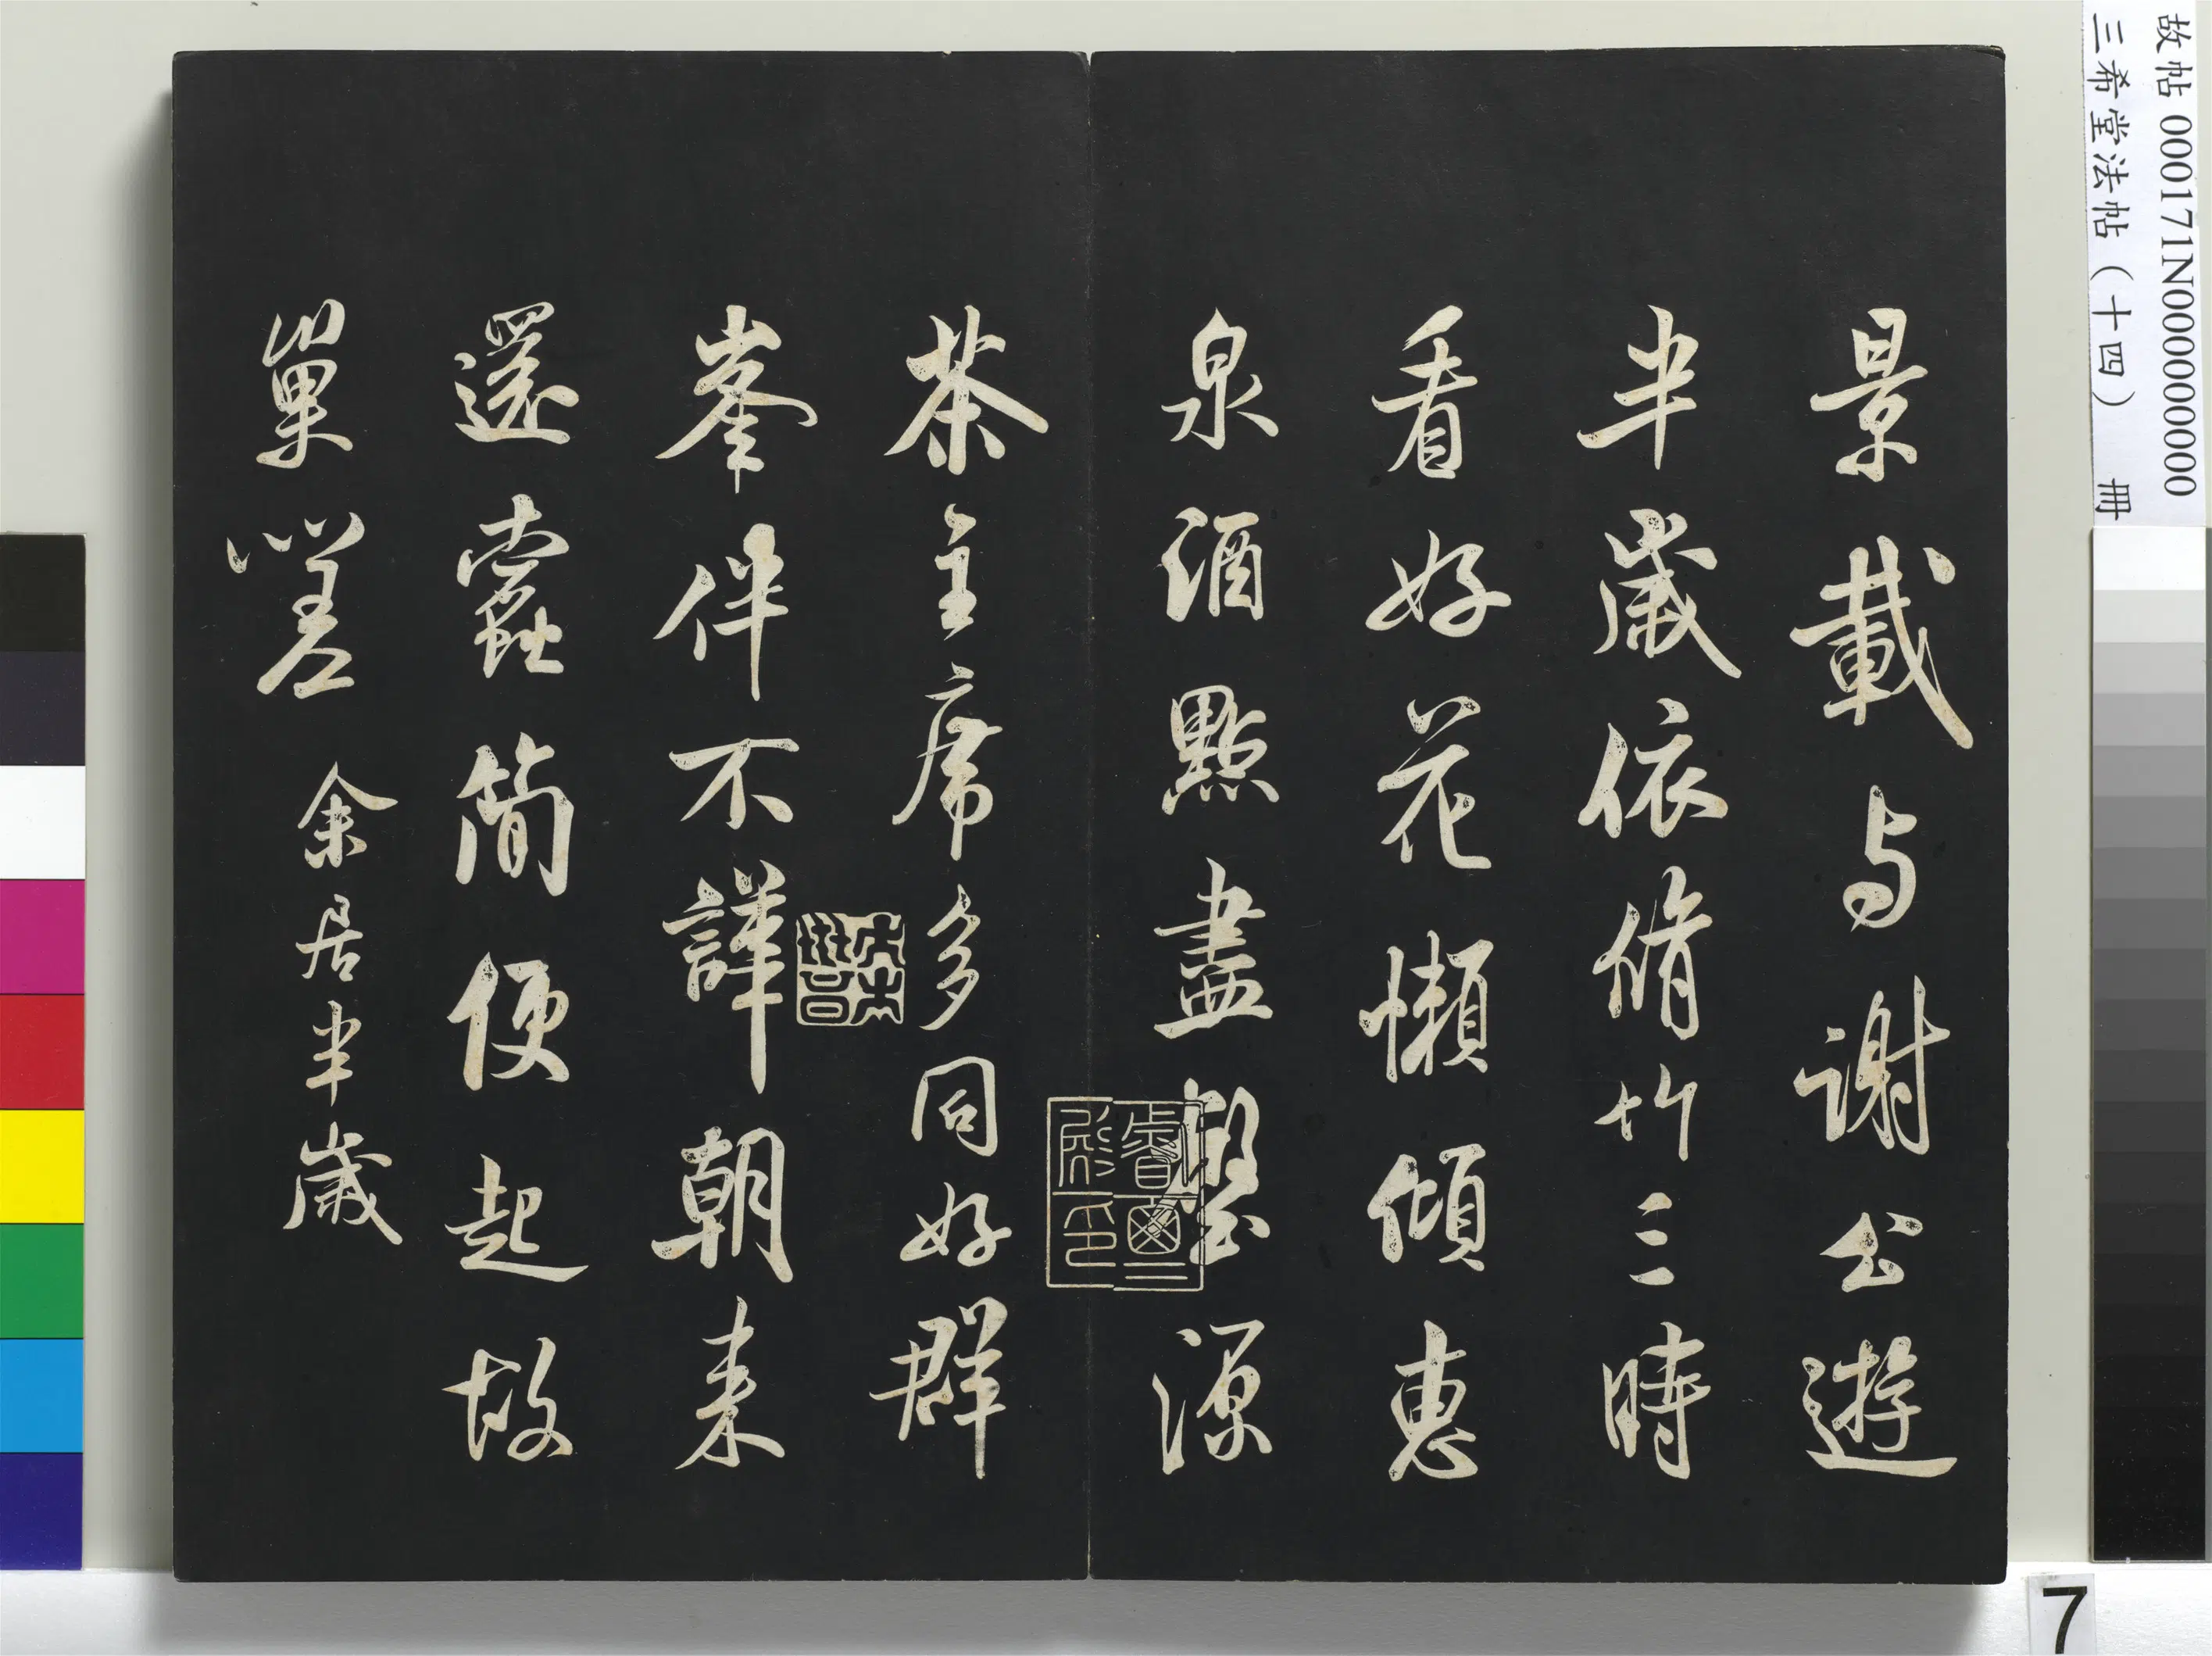 故帖 000171N000000000
三希堂法帖（十四） 冊
景載与謝公遊
半歲依脩竹三時
看好花懶傾惠
泉酒點盡壑源
茶主席多同好群
峯伴不譁朝来
還蠹簡便起故
巢嗟 余居半歲
睿思殿印
7